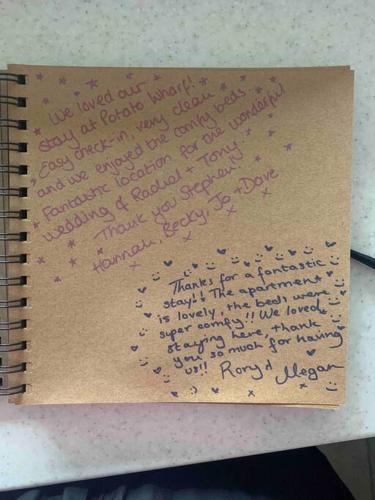 We loved our
stay at Potato Wharf!
Easy check-in, very clean
and we enjoyed the comfy beds.
Fantastic location for the wonderful
wedding of Rachel + Tony.
Thank you Stephen!
Hannah, Becky, Jo + Dave
x x x x
Thanks for a fantastic
stay!! The apartment
is lovely, the beds were
super comfy!! We loved
staying here, thank
you so much for having
us!! Rory & Megan
x x